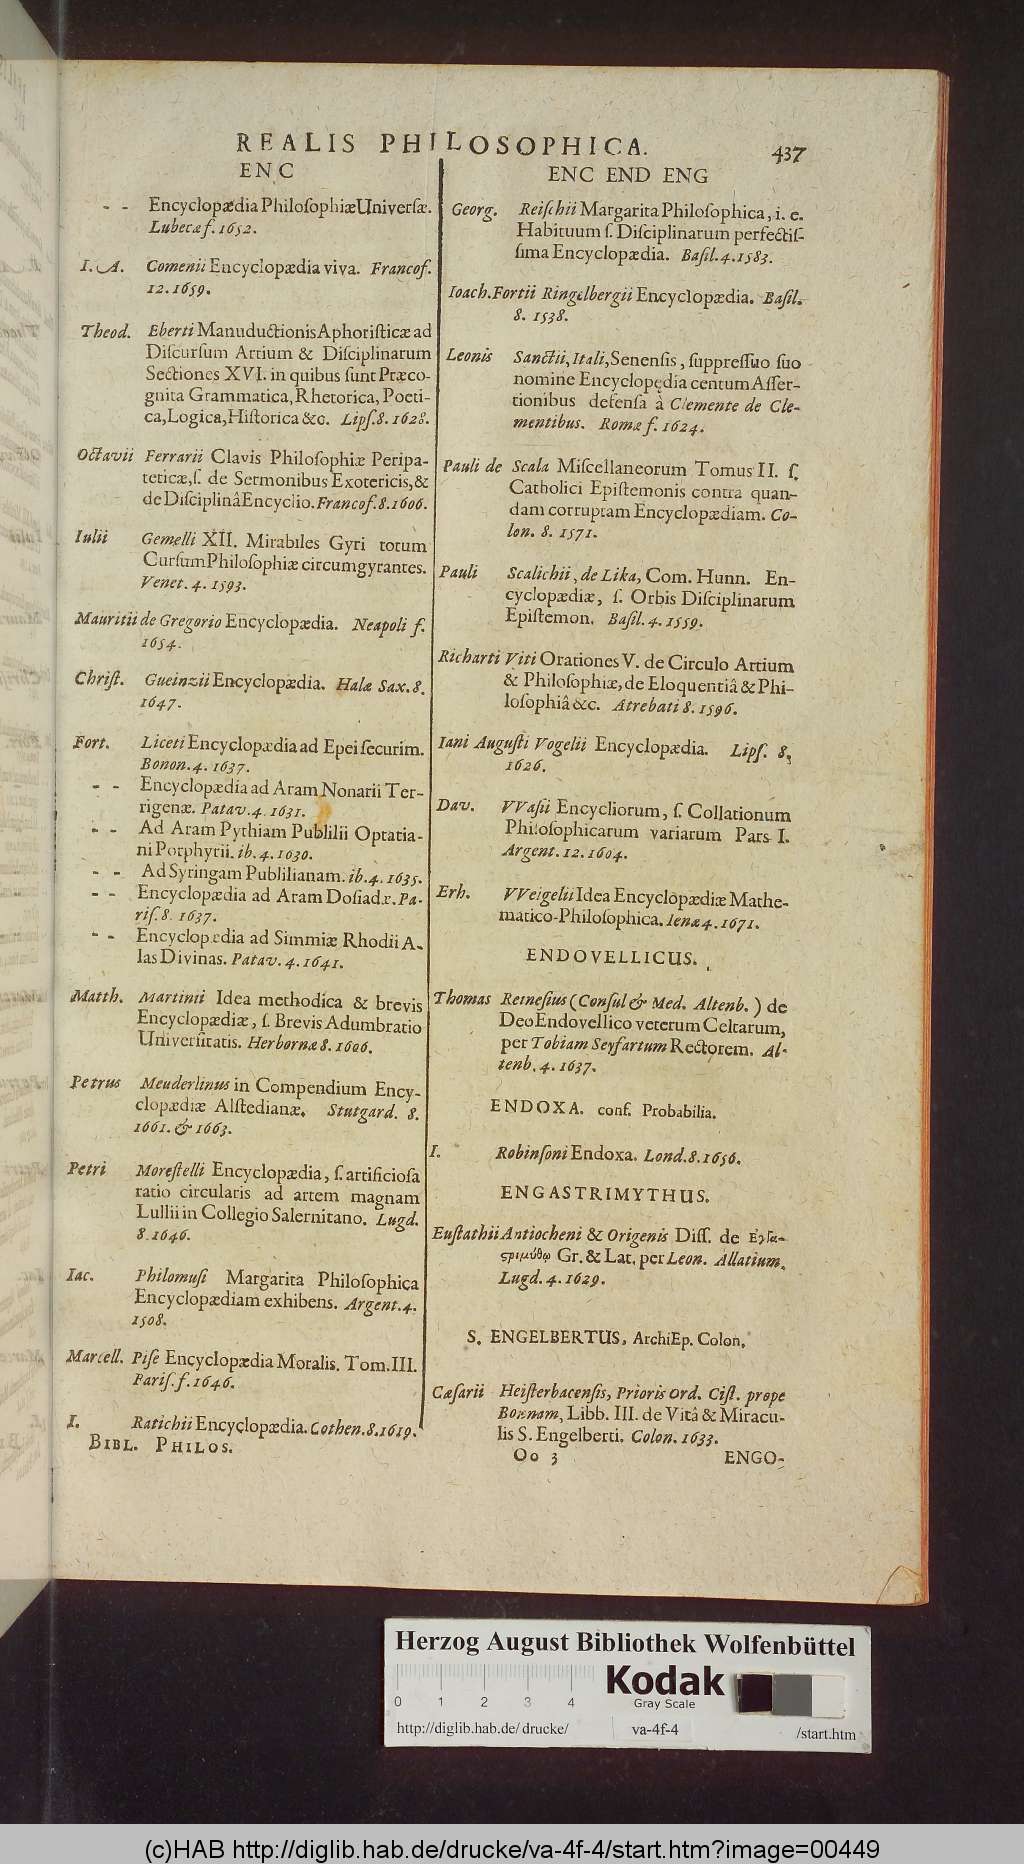 REALIS PHILOSOPHICA. 437
ENC
- - Encyclopædia Philoſophiæ Univerſæ.
Lubecæ f. 1652.
I. A. Comenii Encyclopædia viva. Francof.
12. 1659.
Theod. Eberti Manuductionis Aphoriſticæ ad
Diſcurſum Artium & Diſciplinarum
Sectiones XVI. in quibus ſunt Præco-
gnita Grammatica, Rhetorica, Poeti-
ca, Logica, Hiſtorica &c. Lipſ. 8. 1628.
Octavii Ferrarii Clavis Philoſophiæ Peripa-
teticæ, ſ. de Sermonibus Exotericis, &
de Diſciplinâ Encyclio. Francof. 8. 1606.
Iulii Gemelli XII. Mirabiles Gyri totum
Curſum Philoſophiæ circumgyrantes.
Venet. 4. 1593.
Mauritii de Gregorio Encyclopædia. Neapoli f.
1654.
Chriſt. Gueinzii Encyclopædia. Halæ Sax. 8.
1647.
Fort. Liceti Encyclopædia ad Epei ſecurim.
Bonon. 4. 1637.
- - Encyclopædia ad Aram Nonarii Ter-
rigenæ. Patav. 4. 1631.
- - Ad Aram Pythiam Publilii Optatia-
ni Porphyrii. ib. 4. 1630.
- - Ad Syringam Publilianam. ib. 4. 1635.
- - Encyclopædia ad Aram Doſiadæ. Pa-
riſ. 8. 1637.
- - Encyclopædia ad Simmiæ Rhodii A-
las Divinas. Patav. 4. 1641.
Matth. Martinii Idea methodica & brevis
Encyclopædiæ, ſ. Brevis Adumbratio
Univerſitatis. Herbornæ 8. 1606.
Petrus Meuderlinus in Compendium Ency-
clopædiæ Alſtedianæ. Stutgard. 8.
1661. & 1663.
Petri Moreſtelli Encyclopædia, ſ. artificioſa
ratio circularis ad artem magnam
Lullii in Collegio Salernitano. Lugd.
8. 1646.
Iac. Philomuſi Margarita Philoſophica
Encyclopædiam exhibens. Argent. 4.
1508.
Marcell. Piſe Encyclopædia Moralis. Tom. III.
Pariſ. f. 1646.
I. Ratichii Encyclopædia. Cothen. 8. 1619.
BIBL. PHILOS.
ENC END ENG
Georg. Reiſchii Margarita Philoſophica, i. e.
Habituum ſ. Diſciplinarum perfectiſ-
ſima Encyclopædia. Baſil. 4. 1583.
Ioach. Fortii Ringelbergii Encyclopædia. Baſil.
8. 1538.
Leonis Sanctii, Itali, Senenſis, ſuppreſſuo ſuo
nomine Encyclopędia centum Aſſer-
tionibus defenſa à Clemente de Cle-
mentibus. Romæ f. 1624.
Pauli de Scala Miſcellaneorum Tomus II. ſ.
Catholici Epiſtemonis contra quan-
dam corruptam Encyclopædiam. Co-
lon. 8. 1571.
Pauli Scalichii, de Lika, Com. Hunn. En-
cyclopædiæ, ſ. Orbis Diſciplinarum
Epiſtemon. Baſil. 4. 1559.
Richarti Viti Orationes V. de Circulo Artium
& Philoſophiæ, de Eloquentiâ & Phi-
loſophiâ &c. Atrebati 8. 1596.
Iani Auguſti Vogelii Encyclopædia. Lipſ. 8.
1626.
Dav. VVaſii Encycliorum, ſ. Collationum
Philoſophicarum variarum Pars I.
Argent. 12. 1604.
Erh. VVeigelii Idea Encyclopædiæ Mathe-
matico-Philoſophica. Ienæ 4. 1671.
ENDOVELLICUS.
Thomas Reineſius (Conſul & Med. Altenb.) de
Deo Endovellico veterum Celtarum,
per Tobiam Seyfartum Rectorem. Al-
tenb. 4. 1637.
ENDOXA. conf. Probabilia.
I. Robinſoni Endoxa. Lond. 8. 1656.
ENGASTRIMYTHUS.
Euſtathii Antiocheni & Origenis Diſſ. de Ἐγγα-
ϛριμύθῳ Gr. & Lat. per Leon. Allatium.
Lugd. 4. 1629.
S. ENGELBERTUS, ArchiEp. Colon.
Cæſarii Heiſterbacenſis, Prioris Ord. Ciſt. prope
Bonnam, Libb. III. de Vitâ & Miracu-
lis S. Engelberti. Colon. 1633.
Oo 3 ENGO-
Herzog August Bibliothek Wolfenbüttel
Kodak
Gray Scale
0 1 2 3 4
http://diglib.hab.de/drucke/ va-4f-4 /start.htm
(c)HAB http://diglib.hab.de/drucke/va-4f-4/start.htm?image=00449